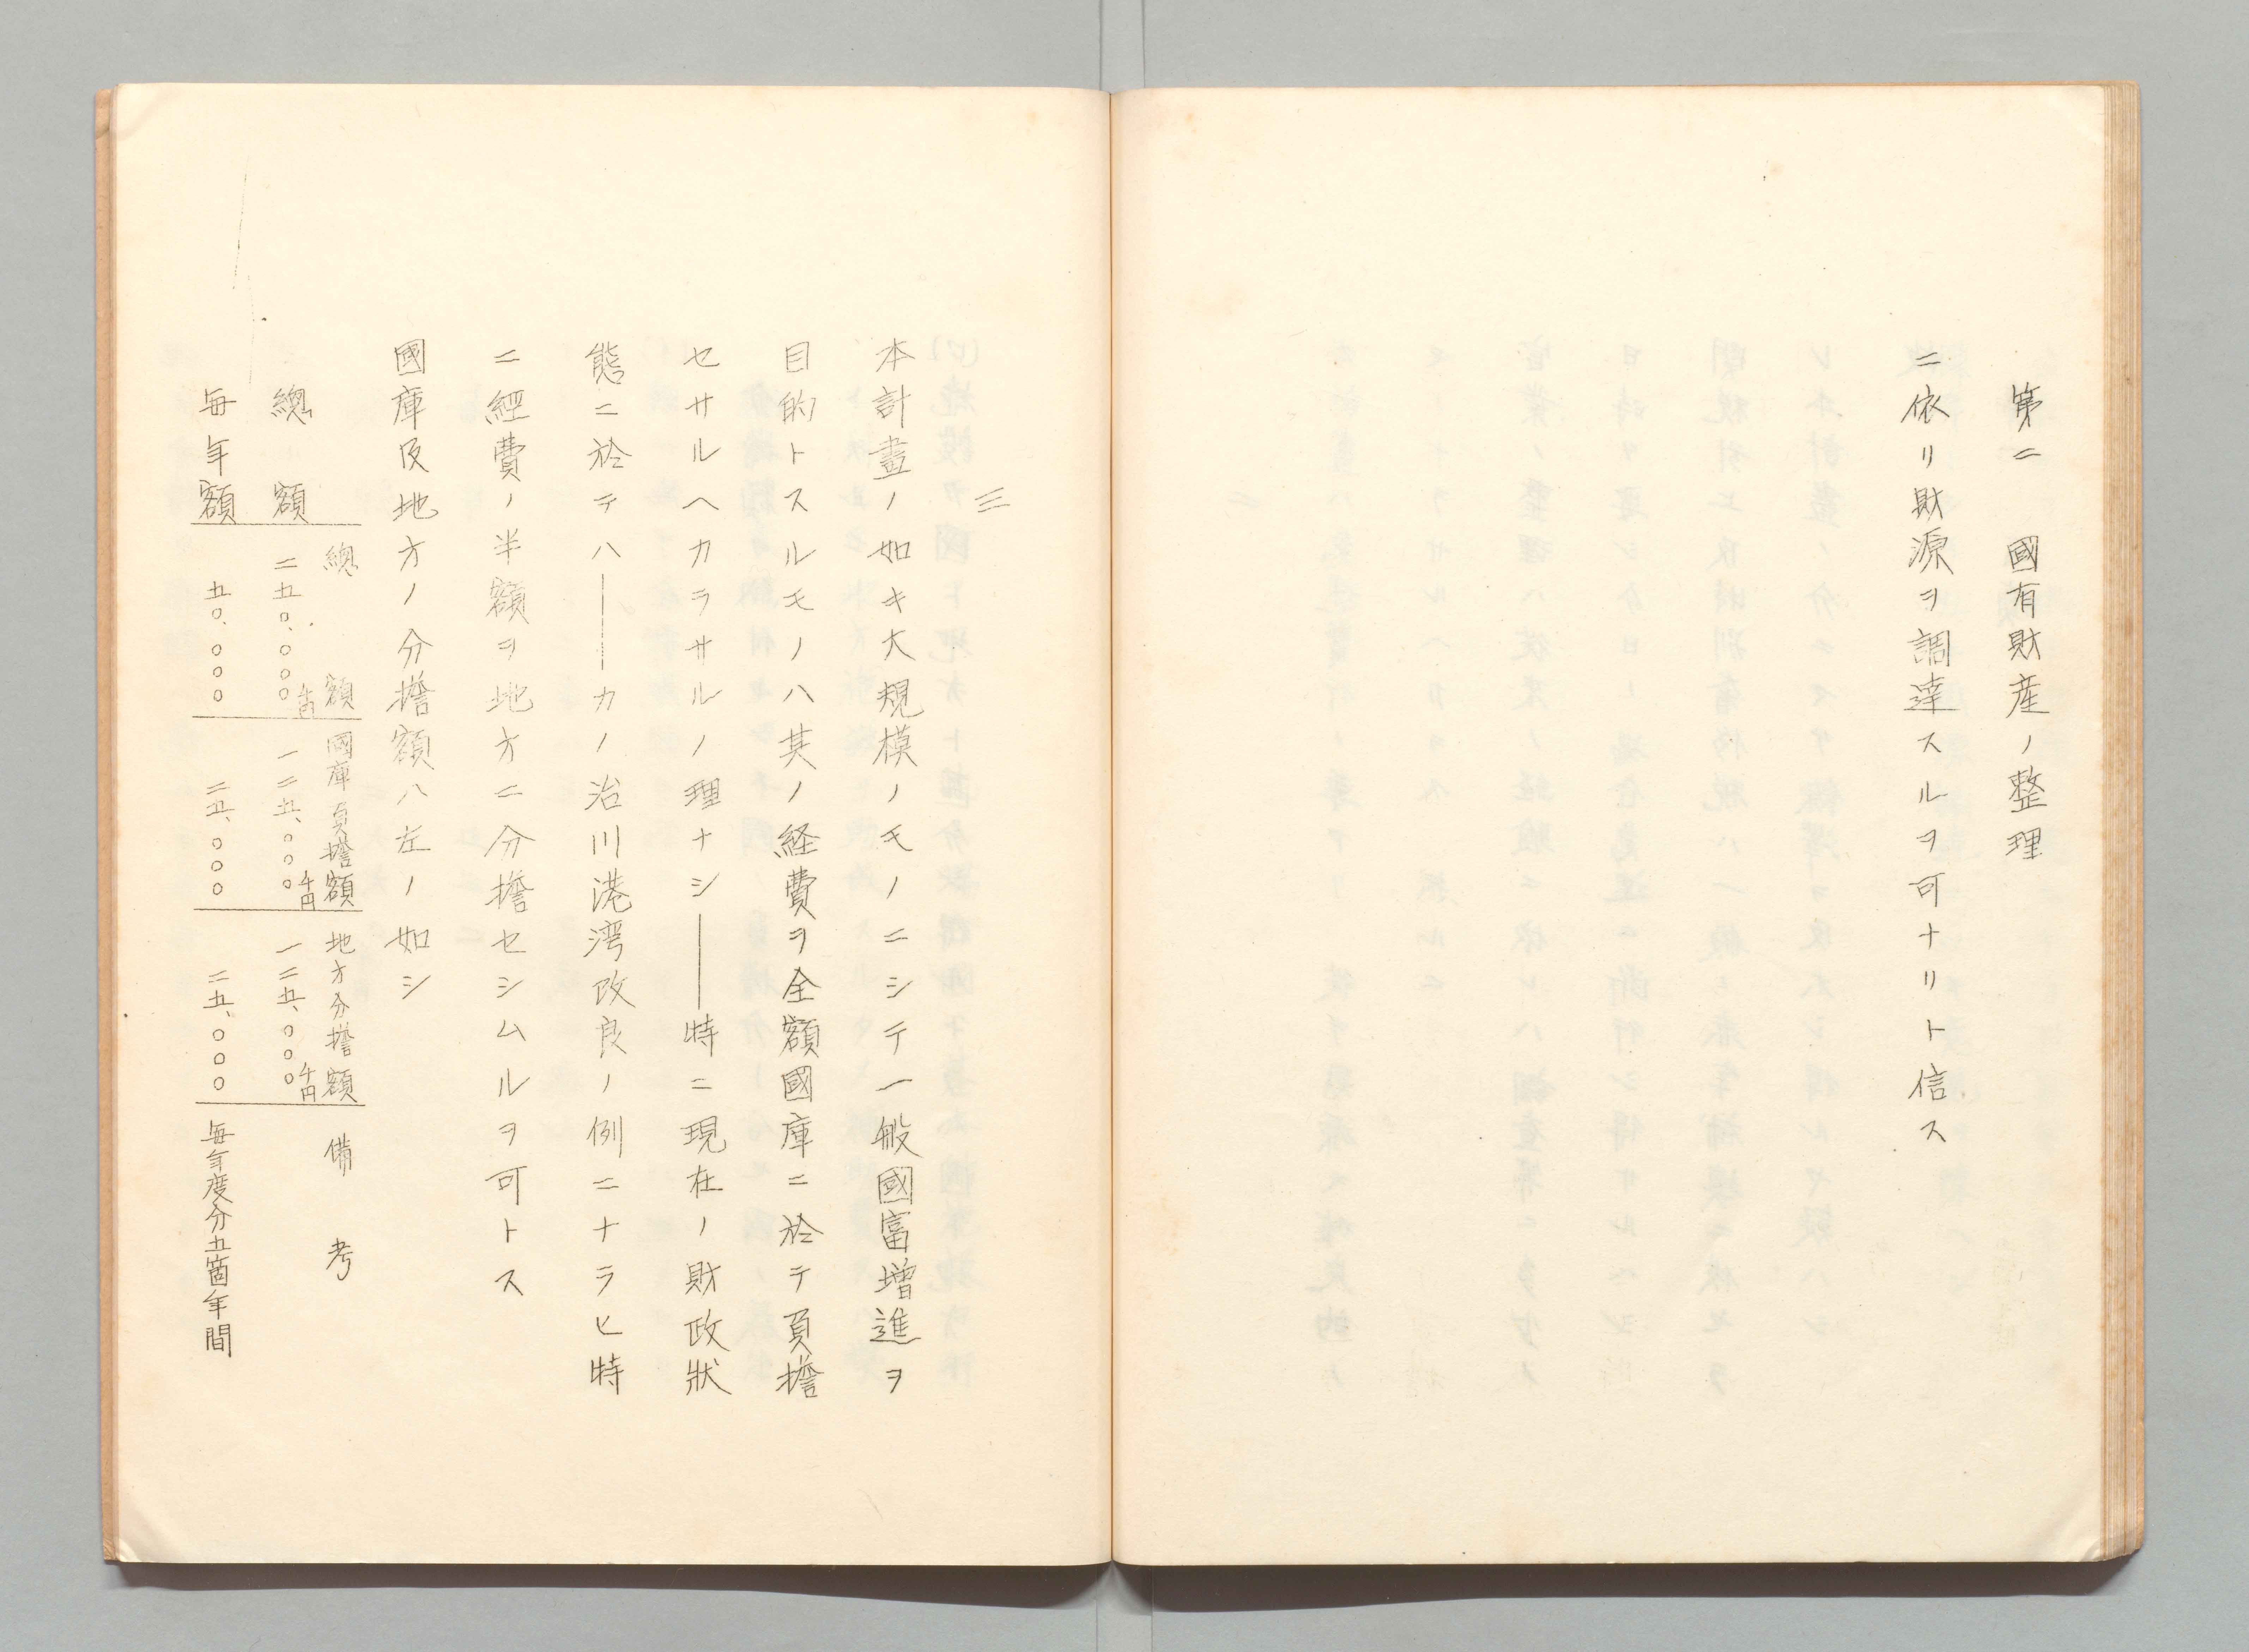 第二　國有財産ノ整理
ニ依リ財源ヲ調達スルヲ可ナリト信ス
三
本計畫ノ如キ大規模ノモノニシテ一般國富増進ヲ
目的トスルモノハ其ノ経費ヲ全額國庫ニ於テ負擔
セサルヘカラサルノ理ナシ――特ニ現在ノ財政狀
態ニ於テハ――カノ治川港湾改良ノ例ニナラヒ特
ニ經費ノ半額ヲ地方ニ分擔セシムルヲ可トス
國庫及地方ノ分擔額八左ノ如シ
總額　國庫負擔額　地方分擔額　備考
總額　二五〇、〇〇〇千円　一二五、〇〇〇千円　一二五、〇〇〇千円
毎年額　五〇、〇〇〇　二五、〇〇〇　二五、〇〇〇　毎年度分五箇年間